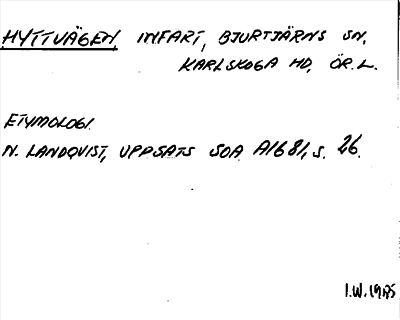 HYTTVÄGEN, INFART, BJURTJÄRNS SN,
KARLSKOGA HD, ÖR. L.
ETYMOLOGI.
N. LANDQVIST, UPPSATS SOA A1681, S. 26.
I.W. 1975